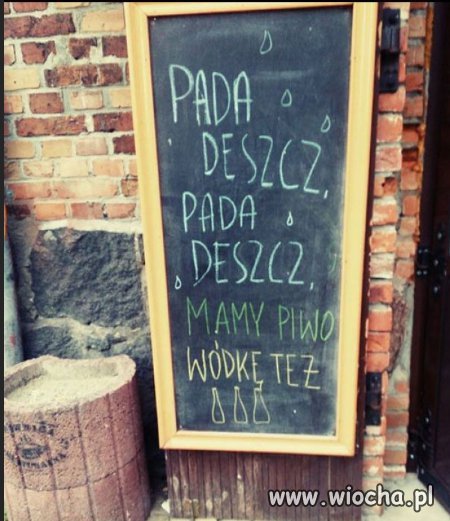 PADA
DESZCZ,
PADA
DESZCZ,
MAMY PIWO
WÓDKĘ TEŻ
www.wiocha.pl